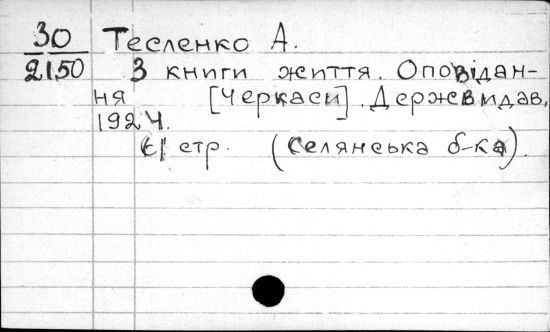 30 Тесленко А.
2150 З книги життя. Оповідан-
ня [Черкаси]. Держвидав,
1924.
61 стр. (Селянська б-ка).